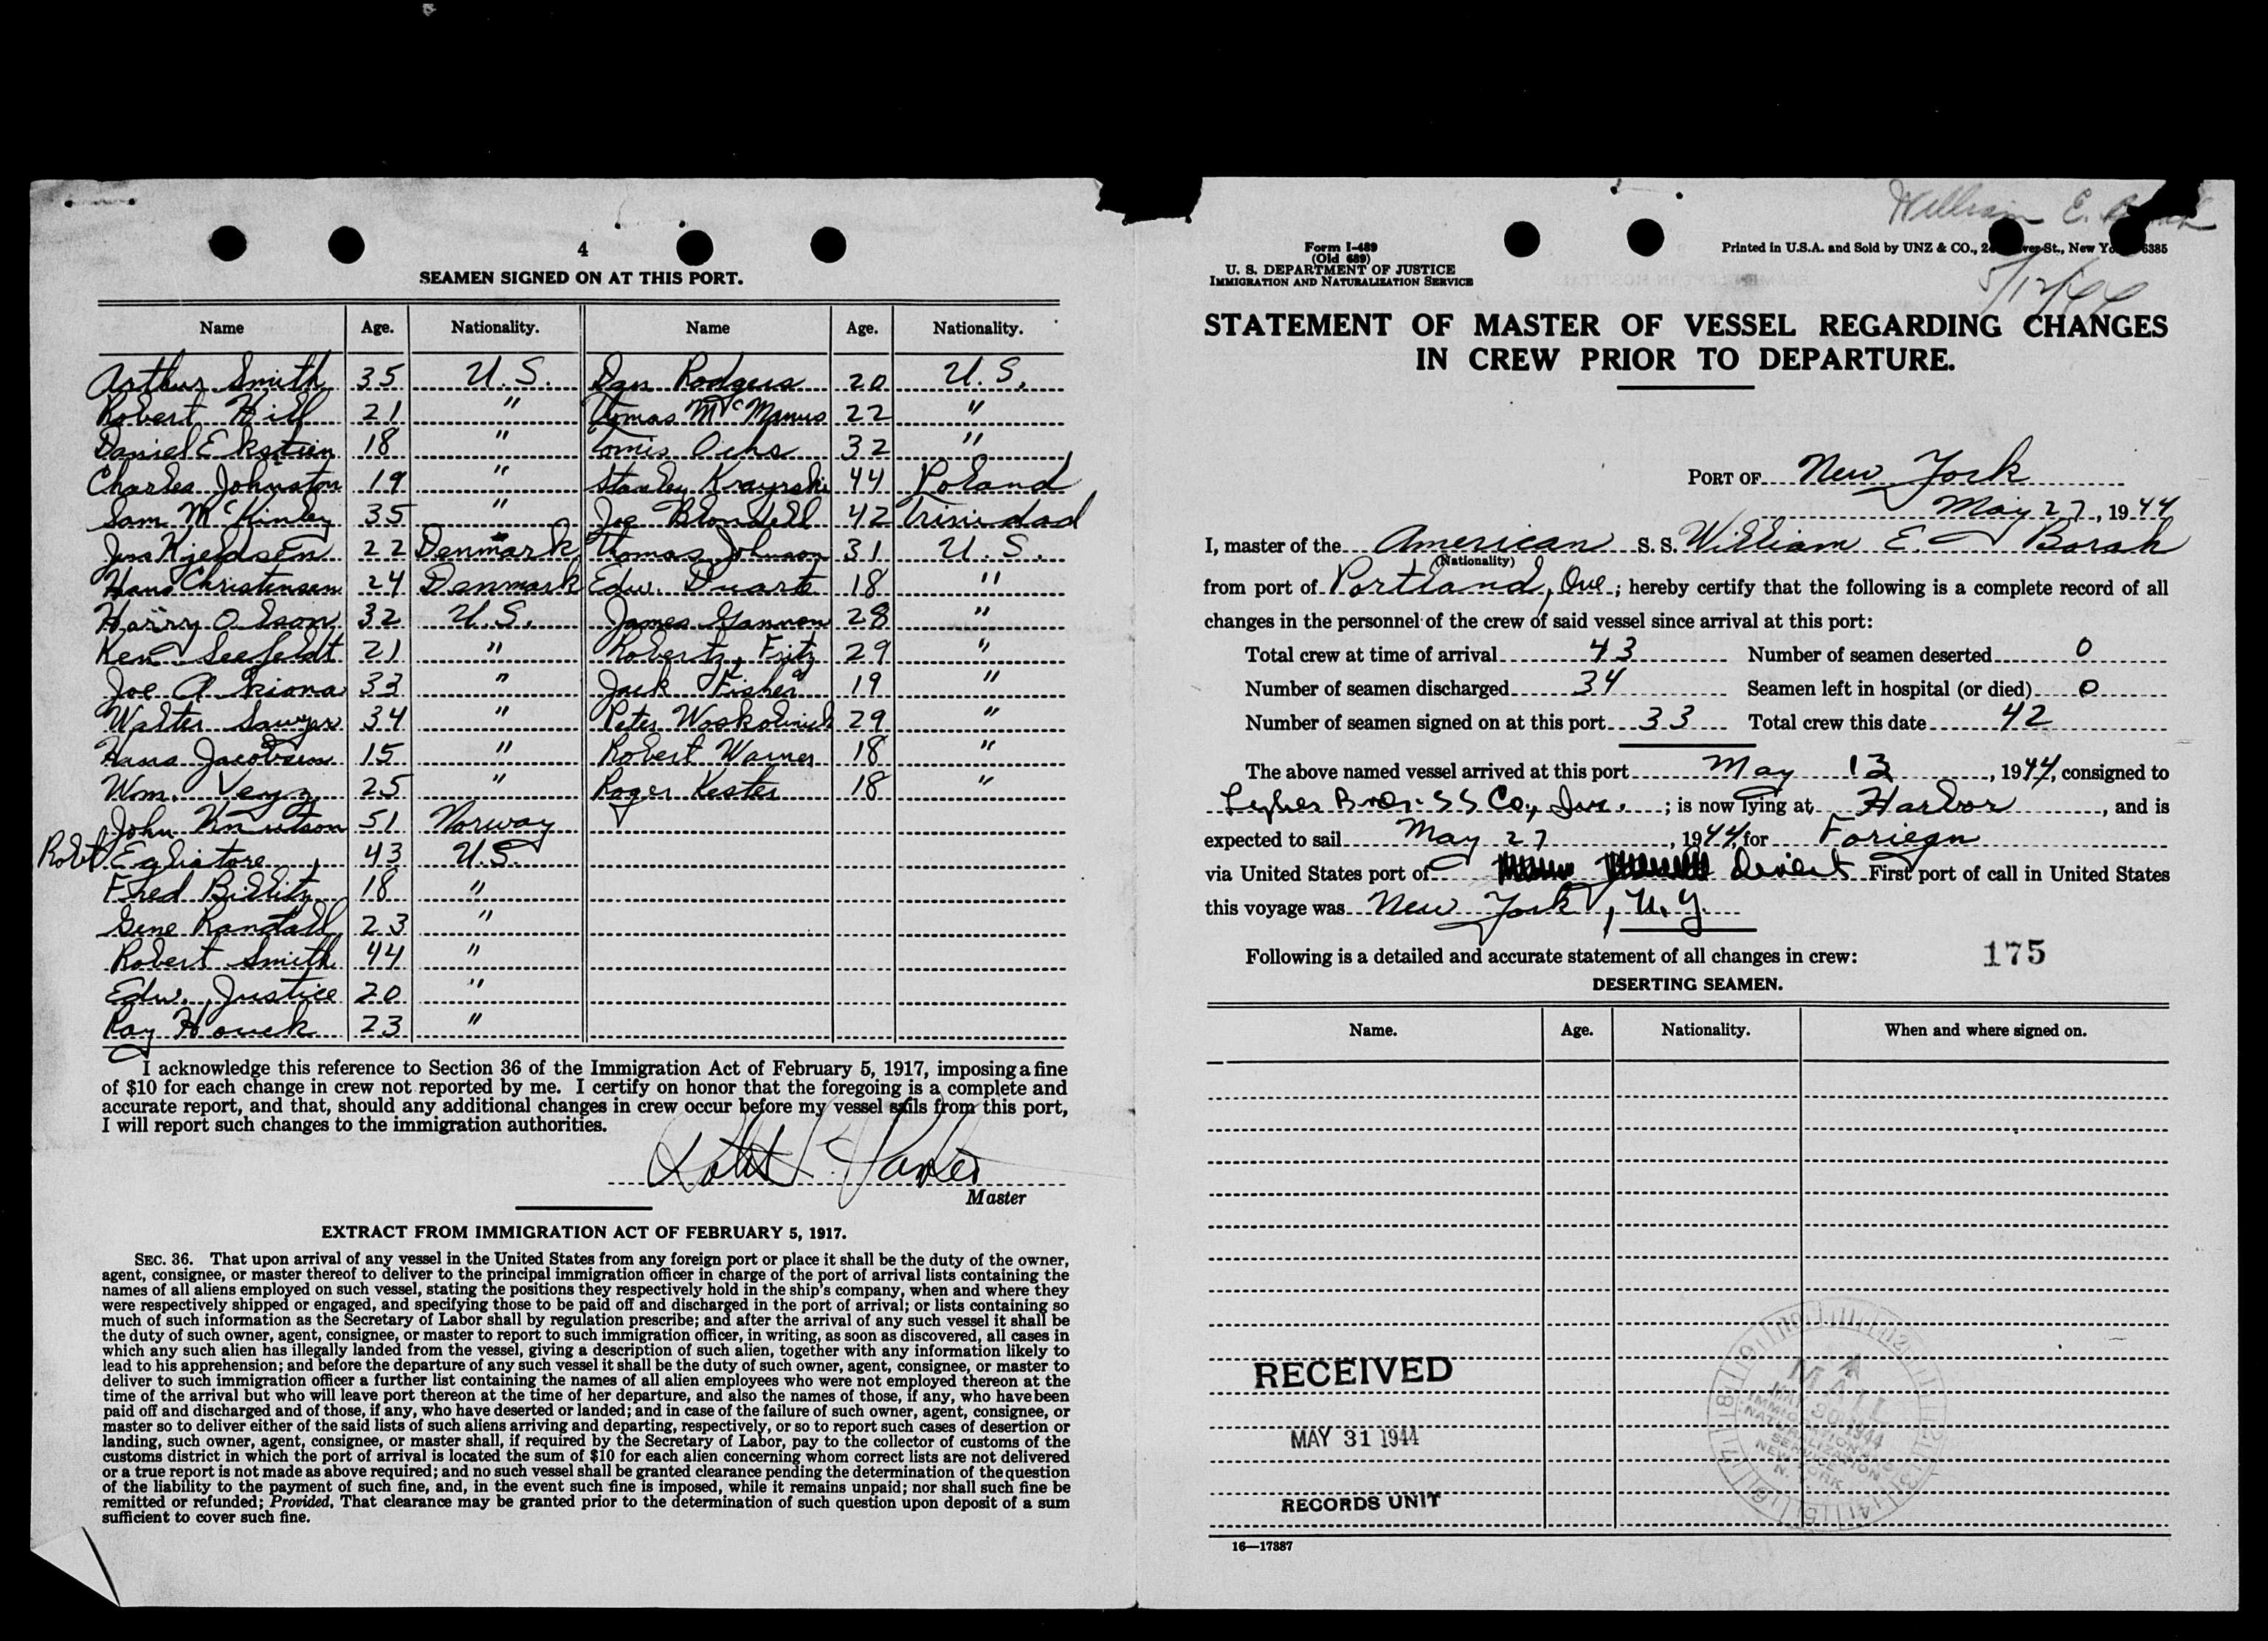 4
SEAMEN SIGNED ON AT THIS PORT.
Name Age. Nationality. Name Age. Nationality.
Arthur Smith 35 U.S. Dan Rodgers 20 U.S.
Robert Hill 21 " Thomas McManus 22 "
Daniel Ekstein 18 " Ochs 32 "
Charles Johnston 19 " Stanley 44 Poland
Sam McKinley 35 " Joe Blondell 42 Trinidad
Jens Kjeldsen 22 Denmark Thomas Johnson 31 U.S.
Hans Christensen 24 Denmark Edw. Duarte 18 "
Harry Olson 32 U.S. James Gannon 28 "
Ken Seefeldt 21 " Robertz, Fritz 29 "
Joe A. 33 " Jack Fisher 19 "
Walter Sawyer 34 " Peter 29 "
Hans Jacobsen 15 " Robert Warner 18 "
Wm. 25 " Roger Kester 18 "
John Knutson 51 Norway
Robt Egliatore 43 U.S.
Fred 18 "
Gene Randall 23 "
Robert Smith 44 "
Edw. Justice 20 "
Ray Houck 23 "
I acknowledge this reference to Section 36 of the Immigration Act of February 5, 1917, imposing a fine
of $10 for each change in crew not reported by me. I certify on honor that the foregoing is a complete and
accurate report, and that, should any additional changes in crew occur before my vessel sails from this port,
I will report such changes to the immigration authorities.
Master
EXTRACT FROM IMMIGRATION ACT OF FEBRUARY 5, 1917.
SEC. 36. That upon arrival of any vessel in the United States from any foreign port or place it shall be the duty of the owner,
agent, consignee, or master thereof to deliver to the principal immigration officer in charge of the port of arrival lists containing the
names of all aliens employed on such vessel, stating the positions they respectively hold in the ship's company, when and where they
were respectively shipped or engaged, and specifying those to be paid off and discharged in the port of arrival; or lists containing so
much of such information as the Secretary of Labor shall by regulation prescribe; and after the arrival of any such vessel it shall be
the duty of such owner, agent, consignee, or master to report to such immigration officer, in writing, as soon as discovered, all cases in
which any such alien has illegally landed from the vessel, giving a description of such alien, together with any information likely to
lead to his apprehension; and before the departure of any such vessel it shall be the duty of such owner, agent, consignee, or master to
deliver to such immigration officer a further list containing the names of all alien employees who were not employed thereon at the
time of the arrival but who will leave port thereon at the time of her departure, and also the names of those, if any, who have been
paid off and discharged and of those, if any, who have deserted or landed; and in case of the failure of such owner, agent, consignee, or
master so to deliver either of the said lists of such aliens arriving and departing, respectively, or so to report such cases of desertion or
landing, such owner, agent, consignee, or master shall, if required by the Secretary of Labor, pay to the collector of customs of the
customs district in which the port of arrival is located the sum of $10 for each alien concerning whom correct lists are not delivered
or a true report is not made as above required; and no such vessel shall be granted clearance pending the determination of the question
of the liability to the payment of such fine, and, in the event such fine is imposed, while it remains unpaid; nor shall such fine be
remitted or refunded; Provided, That clearance may be granted prior to the determination of such question upon deposit of a sum
sufficient to cover such fine.
William E.
5/12/44
Form I-489
(Old 689)
U. S. DEPARTMENT OF JUSTICE
IMMIGRATION AND NATURALIZATION SERVICE
Printed in U.S.A. and Sold by UNZ & CO., St., New 6385
STATEMENT OF MASTER OF VESSEL REGARDING CHANGES
IN CREW PRIOR TO DEPARTURE.
PORT OF New York
May 27, 1944
I, master of the American S. S. William E. Borah
(Nationality)
from port of Portland, Ore; hereby certify that the following is a complete record of all
changes in the personnel of the crew of said vessel since arrival at this port:
Total crew at time of arrival 43 Number of seamen deserted 0
Number of seamen discharged 34 Seamen left in hospital (or died) 0
Number of seamen signed on at this port 33 Total crew this date 42
The above named vessel arrived at this port May 13, 1944, consigned to
Lykes Bros. SS Co., Inc.; is now lying at Harbor, and is
expected to sail May 27, 1944, for Foriegn
via United States port of Direct First port of call in United States
this voyage was New York, N.Y.
Following is a detailed and accurate statement of all changes in crew: 175
DESERTING SEAMEN.
Name. Age. Nationality. When and where signed on.
RECEIVED
MAY 31 1944
RECORDS UNIT
MAIL
MAY 30 1944
IMMIGRATION &
NATURALIZATION
SERVICE
NEW YORK
N.Y.
16—17887